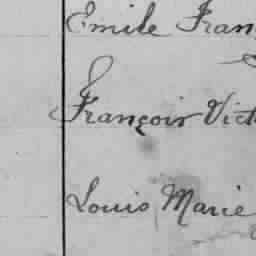 Emile Fran
François Vict
Louis Marie